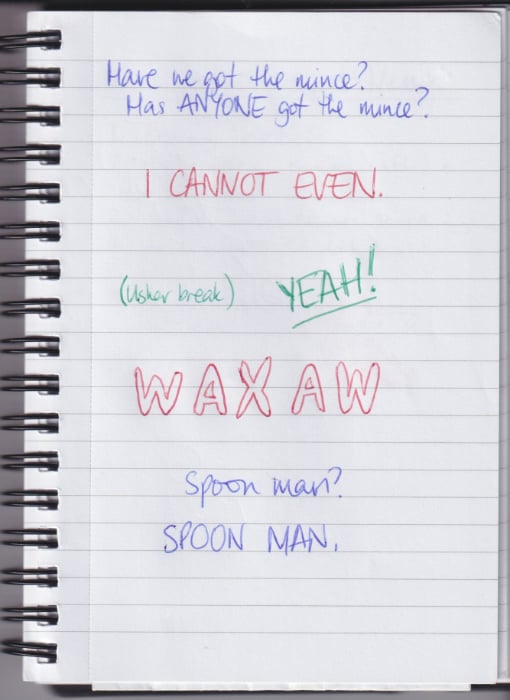 Have we got the mince?
Has ANYONE got the mince?
I CANNOT EVEN.
(Usher break) YEAH!
WAXAW
Spoon man?
SPOON MAN.